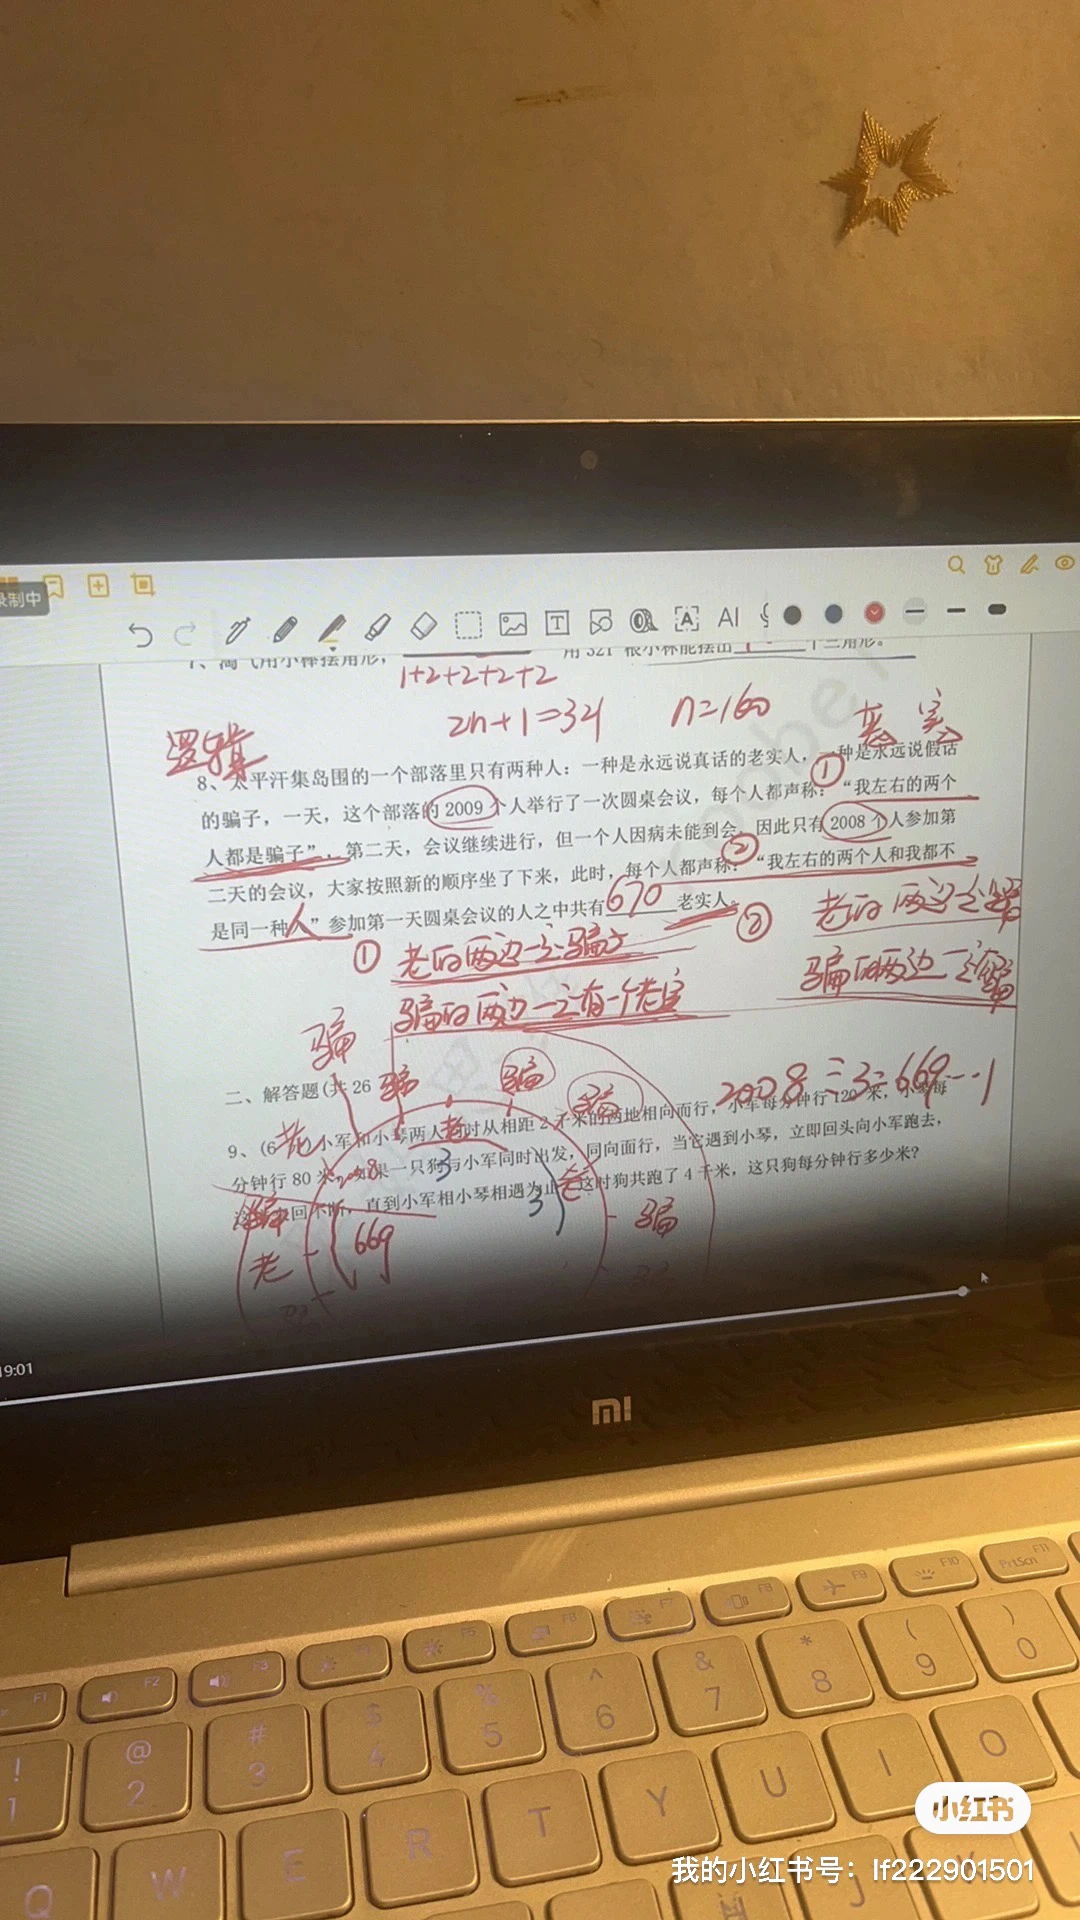 录制中
T A AI
1+2+2+2+2
用 321 根小棒能摆出 个三角形。
2n+1=321 n=160
逻辑 真 实
8、太平汗集岛围的一个部落里只有两种人：一种是永远说真话的老实人，一种是永远说假话
的骗子，一天，这个部落的 2009 个人举行了一次圆桌会议，每个人都声称：①“我左右的两个
人都是骗子”，第二天，会议继续进行，但一个人因病未能到会，因此只有 2008 个人参加第
二天的会议，大家按照新的顺序坐了下来，此时，每个人都声称：②“我左右的两个人和我都不
是同一种人”参加第一天圆桌会议的人之中共有 670 老实人。
① 老的两边一定骗子
② 老的两边一定骗
骗的两边一定有一个老实
骗的两边一定骗
骗 骗 骗 骗
2008÷3=669…1
二、解答题(共 26
老 老
9、(6 小军和小琴两人同时从相距 2 千米的两地相向而行，小军每分钟行 120 米，小琴每
分钟行 80 米，如果一只狗与小军同时出发，同向面行，当它遇到小琴，立即回头向小军跑去，
回不断，直到小军相小琴相遇为止，这时狗共跑了 4 千米，这只狗每分钟行多少米？
2008 3 老 3
骗 669 骗
老
19:01
mi
F1 F2 F3 F5 F6 F7 F8 F9 F10 PrtScn F11
! 1 @ 2 # 3 $ 4 % 5 ^ 6 & 7 * 8 ( 9 ) 0
Q W E R T Y U I O
J K
小红书
我的小红书号：lf222901501